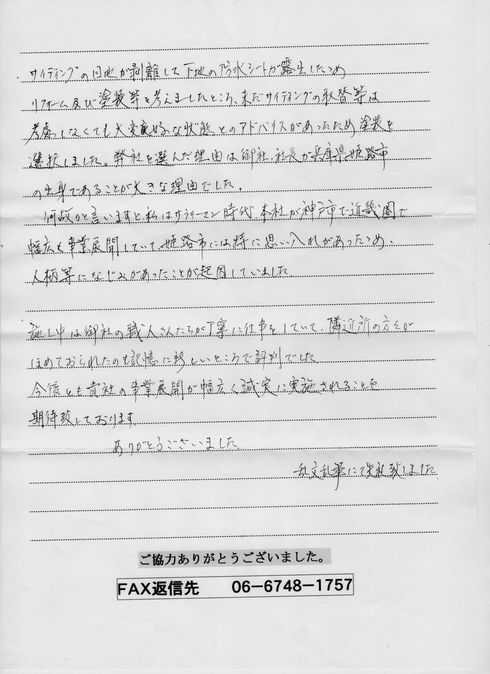 サイディングの目地が剥離して下地の防水シートが露出したため
リフォーム及び塗装等を考えましたところ、まだサイディングの取替等は
考慮しなくても大変良好な状態とのアドバイスがあったため塗装を
選択しました。弊社を選んだ理由は御社、社長が兵庫県姫路市
の出身であることが大きな理由でした。
何故かと言いますと私はサラリーマン時代、本社が神戸市で近畿圏で
幅広く事業展開していて、姫路市には特に思い入れがあったため、
人柄等になじみがあったことが起因していました
施工中は御社の職人さんたちが丁寧に仕事をしていて、隣近所の方々が
ほめておられたのも記憶に新しいところで評判でした
今後とも貴社の事業展開が幅広く誠実に実施されることを
期待致しております
ありがとうございました
乱文乱筆にて失礼致しました
ご協力ありがとうございました。
FAX返信先 06-6748-1757